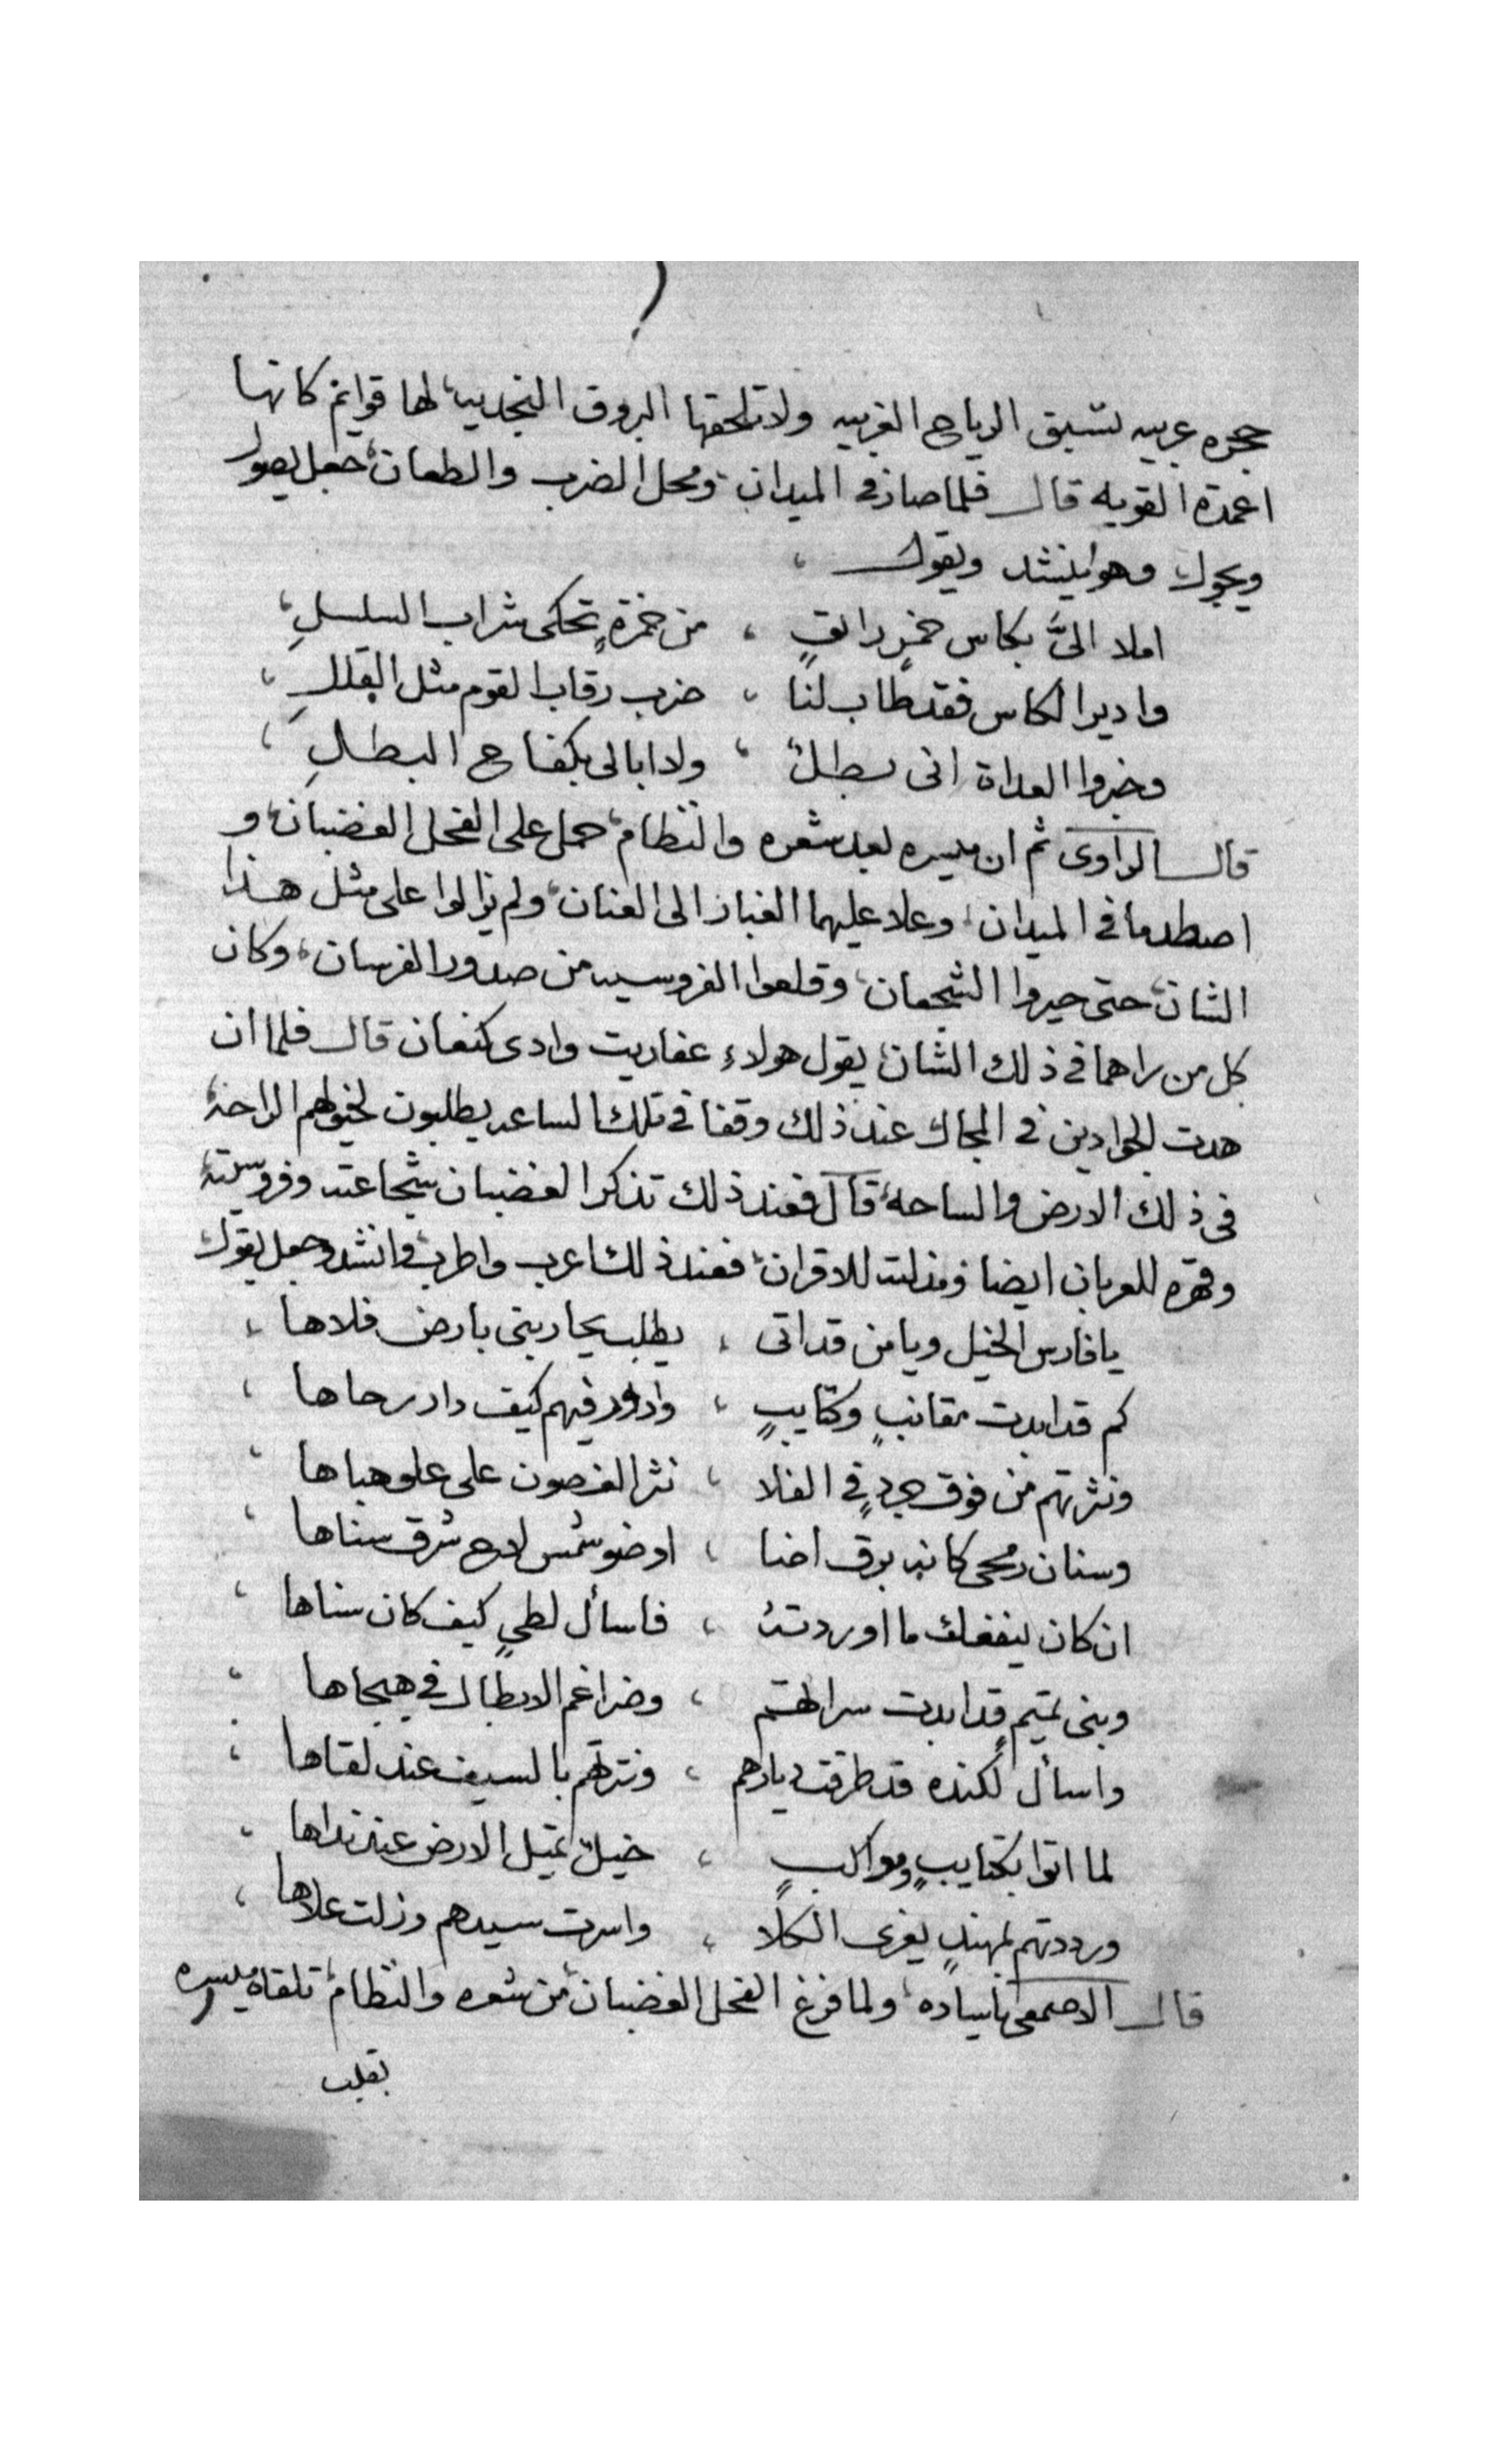 حجره عربيه تسبق الرياح الغربيه ولا تلحقها البروق النجديه، لها قوايم كانها
اعمدة القويه قال فلما صار في الميدان، ومحل الضرب والطعان، جعل يصول
ويجول وهو ينشد ويقول ،
املا اليَّ بكاس خمرٍ رايقٍ ، من خمرةٍ تحكى شراب السلسلِ ،
واديرا لكاس فقد طاب لنا ، ضرب رقاب القوم مثل القللِ ،
وخبروا العداة انى بطلٌ ، ولا ابالى بكفاح البطلِ ،
قال الراوى ثم ان ميسره بعد شعره والنظام، حمل على الفحل الغضبان، و
اصطدما في الميدان، وعلا عليهما الغبار الى العنان، ولم يزالوا على مثل هذا
الشان، حتى حيروا الشجعان، وقلعوا الفروسيه من صدور الفرسان، وكان
كل من راهما في ذلك الشان، يقول هولاء عفاريت وادى كنعان قال فلما ان
هدت الجوادين في المجال عند ذلك وقفا في تلك الساعه يطلبون لخيولهم الراحة،
فى ذلك الارض والساحة، قال فعند ذلك تذكر الغضبان شجاعته وفروسيته
وقهره للعربان ايضا ومذلته للاقران، فعند ذلك اعرب واطرب، وانشد وجعل يقول
يا فارس الخيل ويا من قد اتى ، يطلب يحاربنى بارض فلاها ،
كم قد ابدت مقانبٍ وكتايبٍ ، وادور فيهم كيف دار رحاها ،
ونثرتهم من فوق جردٍ في الفلا ، نثر الغصون على علو هباها ،
وسنان رمحى كانه برق اضا ، او ضو شمس لاح شرق سناها ،
ان كان ينفعك ما اوردته ، فاسأل لطيٍ كيف كان سناها ،
وبنى تميمٍ قد ابدت سراتهم ، وضراغم الابطال في هيجاها ،
واسأل لكنده قد طرقت ديارهم ، ونثرتهم بالسيف عند لقاها ،
لما اتوا بكتايبٍ ومواكبٍ ، خيلٌ تميل الارض عند نداها ،
ورددتهم بمهندٍ يفرى الكلا ، واسرت سيدهم وزلت علاها ،
قال الاصمعى يا ساده، ولما فرغ الفحل الغضبان، من شعره والنظام، تلقاه ميسره
بقلب